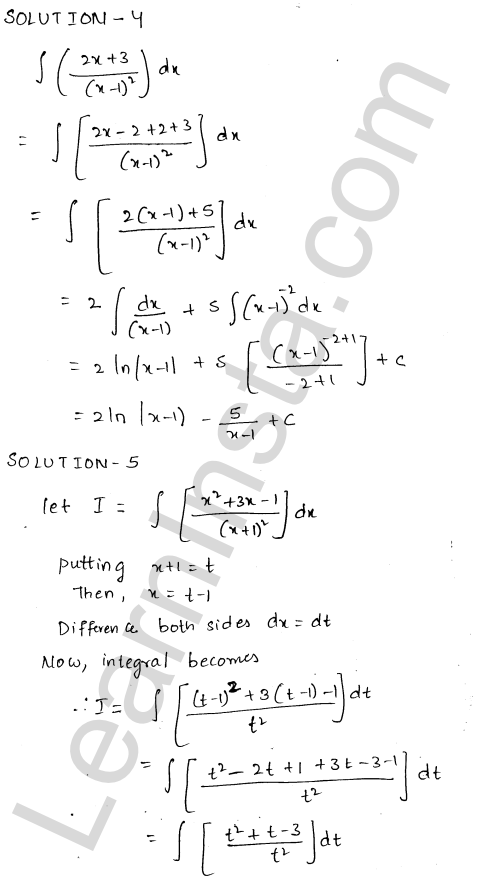 SOLUTION - 4
∫ ( (2x+3) / (x-1)² ) dx
= ∫ [ (2x - 2 + 2 + 3) / (x-1)² ] dx
= ∫ [ (2(x-1) + 5) / (x-1)² ] dx
= 2 ∫ dx/(x-1) + 5 ∫ (x-1)⁻² dx
= 2 ln|x-1| + 5 [ (x-1)⁻²⁺¹ / (-2+1) ] + c
= 2 ln |x-1) - 5/(x-1) + C
SOLUTION - 5
let I = ∫ [ (x² + 3x - 1) / (x+1)² ] dx
putting x+1 = t
Then, x = t-1
Difference both sides dx = dt
Now, integral becomes
∴ I = ∫ [ ((t-1)² + 3(t-1) - 1) / t² ] dt
= ∫ [ (t² - 2t + 1 + 3t - 3 - 1) / t² ] dt
= ∫ [ (t² + t - 3) / t² ] dt
LearnInsta.com